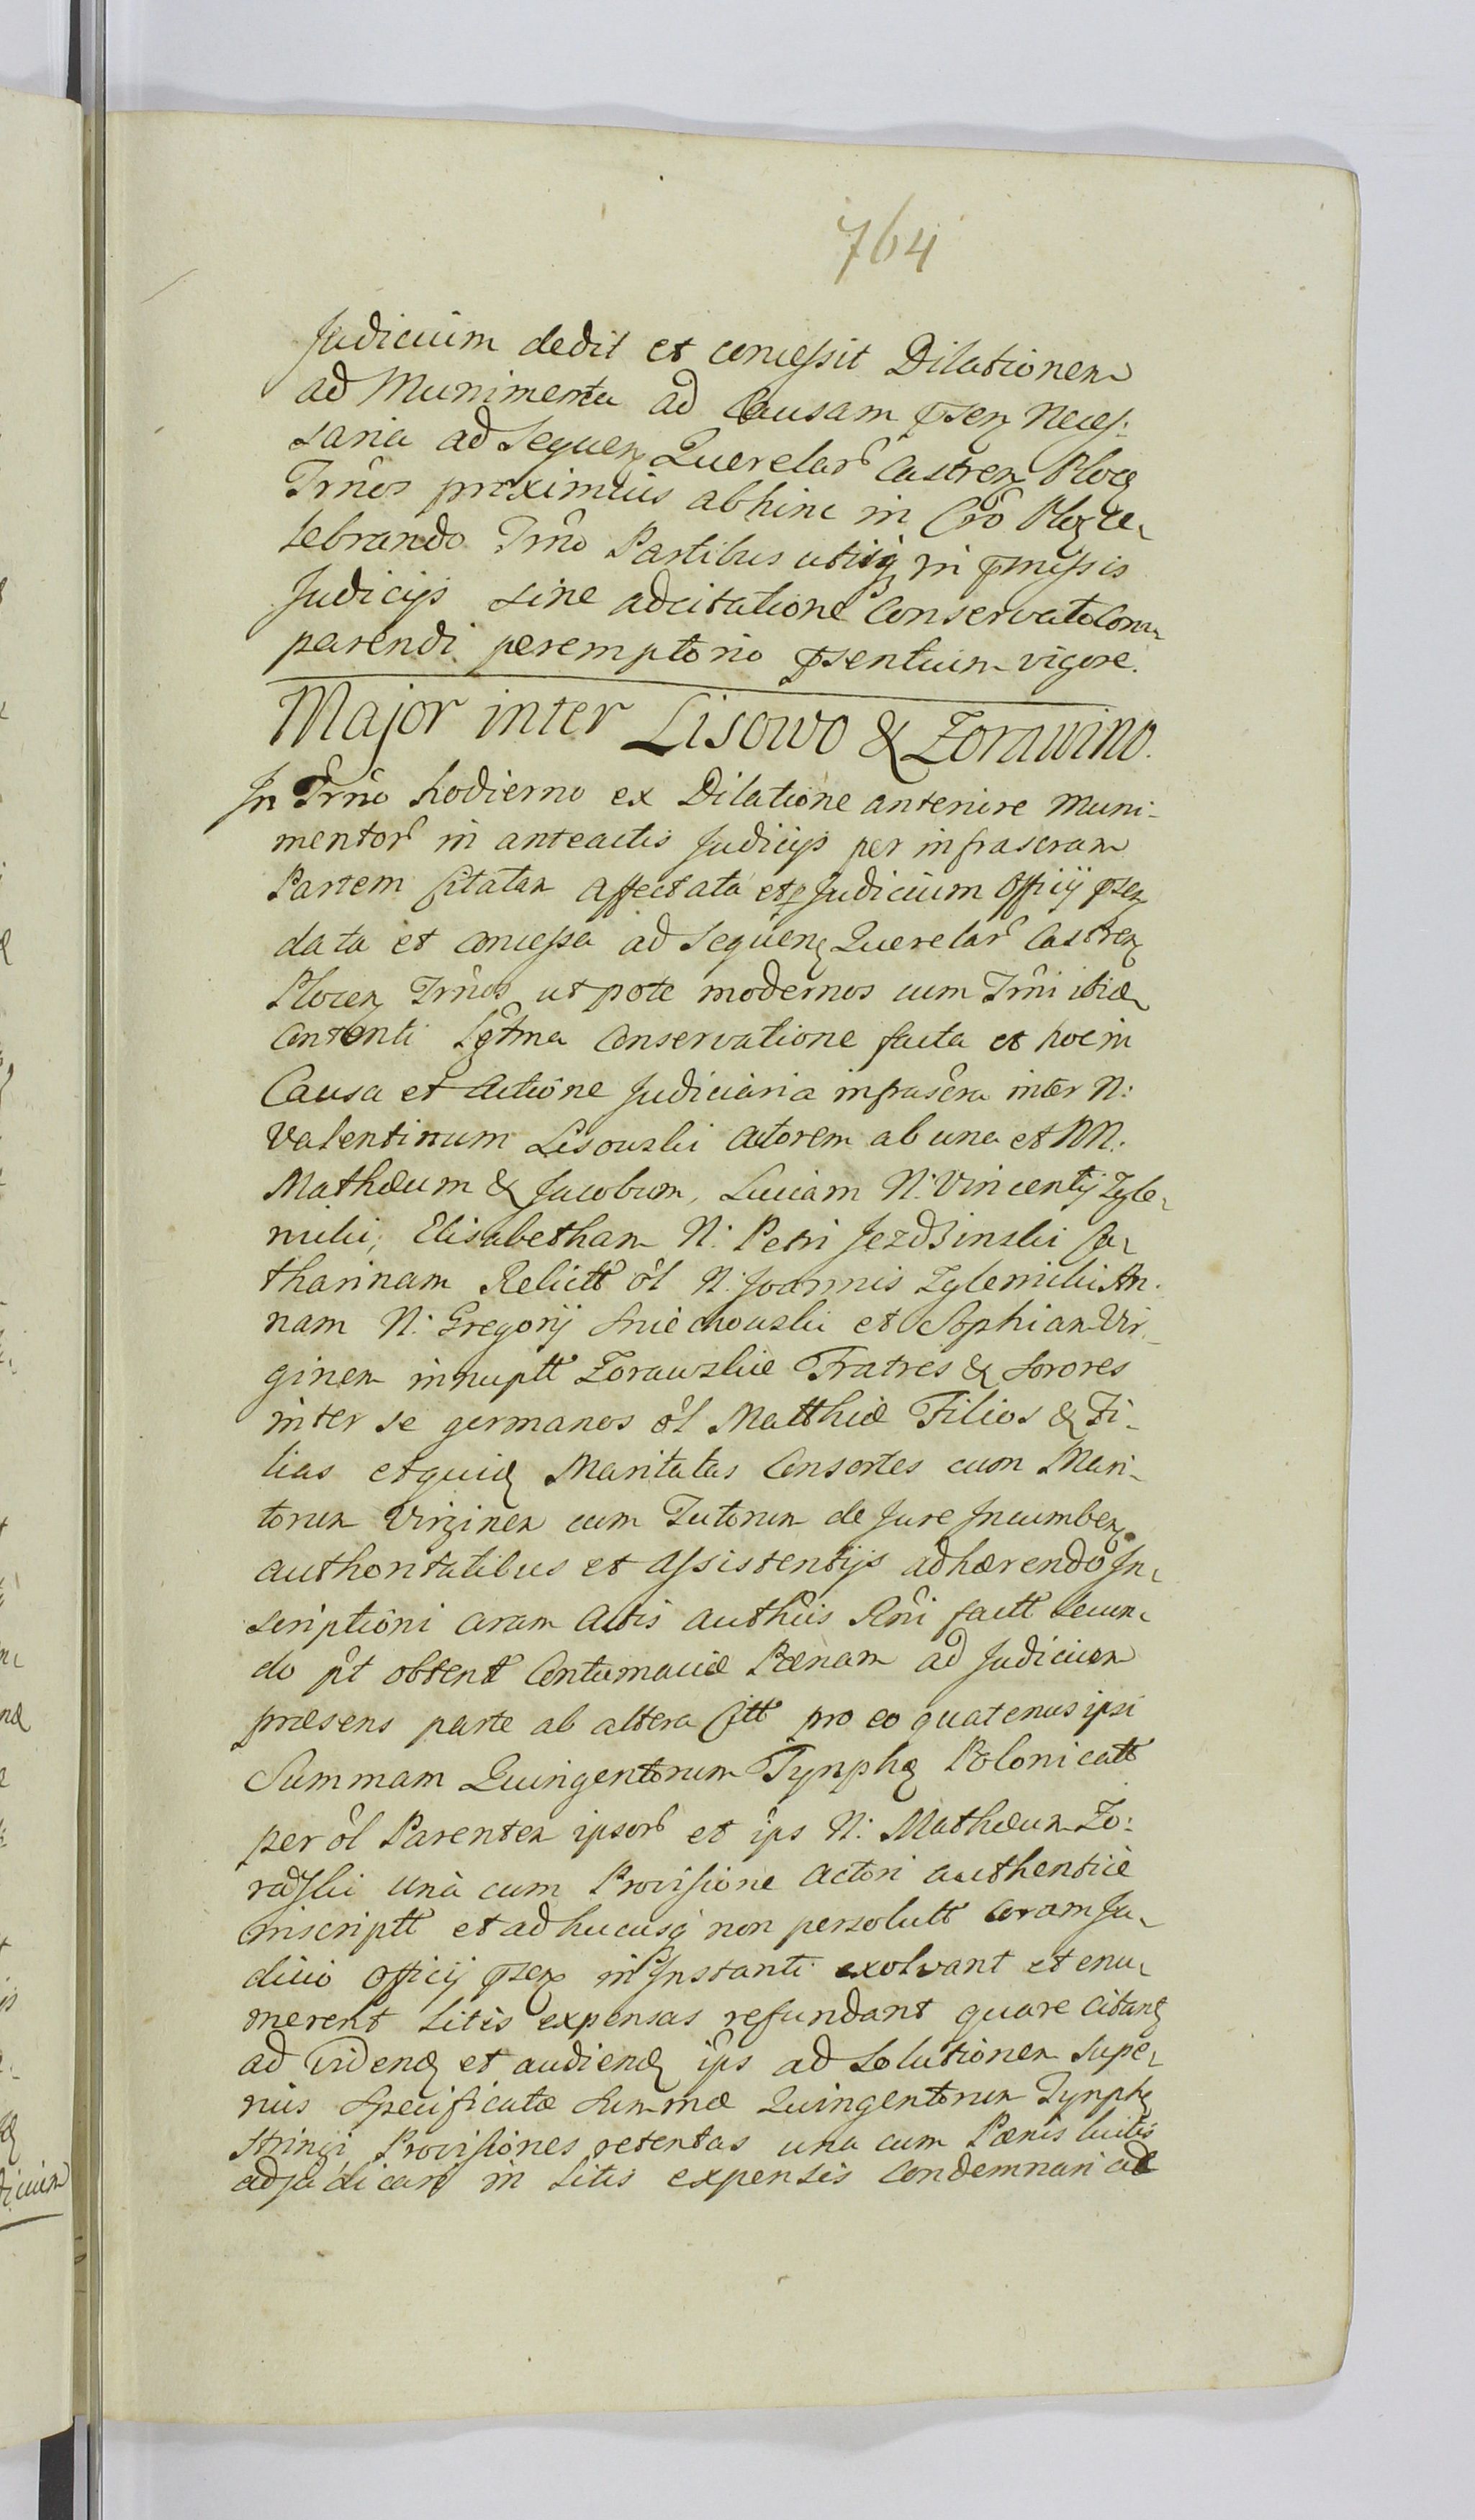 764
Judicium dedit et concessit Dilationem
ad Munimenta ad Causam psen Neces:
saria ad Sequen Querelar Castren Ploc
Trnos proximius abhinc in Cro Ploc ce
lebrando Trno Partibus utiq in pmissis
Judicijs sine adcitatione conservato com
parendi peremptorio psentium vigore.
Major inter Lisowo & Zorawino.
In Trno hodierno ex Dilatione anterire Muni-
mentor in anteactis Judicijs per infrascram
Partem Citatam affectata et p Judicium Officij psen
data et concessa ad Sequen Querelar Castren
Plocen Trnos utpote modernos cum Trni ibid
Contenti Lgtma Conservatione facta et hoc in
Causa et Actione Judiciaria infrascra inter N:
Valentinum Lisowski Actorem ab una et NN.
Mathæum & Jacobum, Luciam N: Vincentij Zgle
nicki, Elisabetham N: Petri Jezdzinski Ca
tharinam Relictt ol N: Joannis Zglenicki An-
nam N: Gregorij Sniechowski et Sophiam Vir-
ginem innuptt Zorawskie Fratres & Sorores
inter se germanos ol Matthiæ Filios & Fi-
lias et quid Maritatas Consortes cum Mari-
torum Virginem cum Tutorum de Jure Incumben
authoritatibus et assistentijs adhærendo In
scriptioni coram Actis authcis Rni factt secun
do pt obtentt Contumaciæ Pænam ad Judicium
præsens parte ab altera Citt pro eo quatenus ipsi
Summam Quingentorum Tynph Polonicatt
per ol Parentem ipsor et ips N: Mathæum Zo:
rawski unà cum Provisione Actori authentice
inscriptt et adhucusq non persolutt coram Ju
dicio Officij psen in Instanti exolvant et enu
merent Litis expensas refundant quare citant
ad Viden et audien ips ad Solutionem supe
rius Specificatæ Summæ Quingentorum Tynph
stringi Provisiones retentas una cum Pænis luitis
adjudicari in Litis expensis Condemnari ad